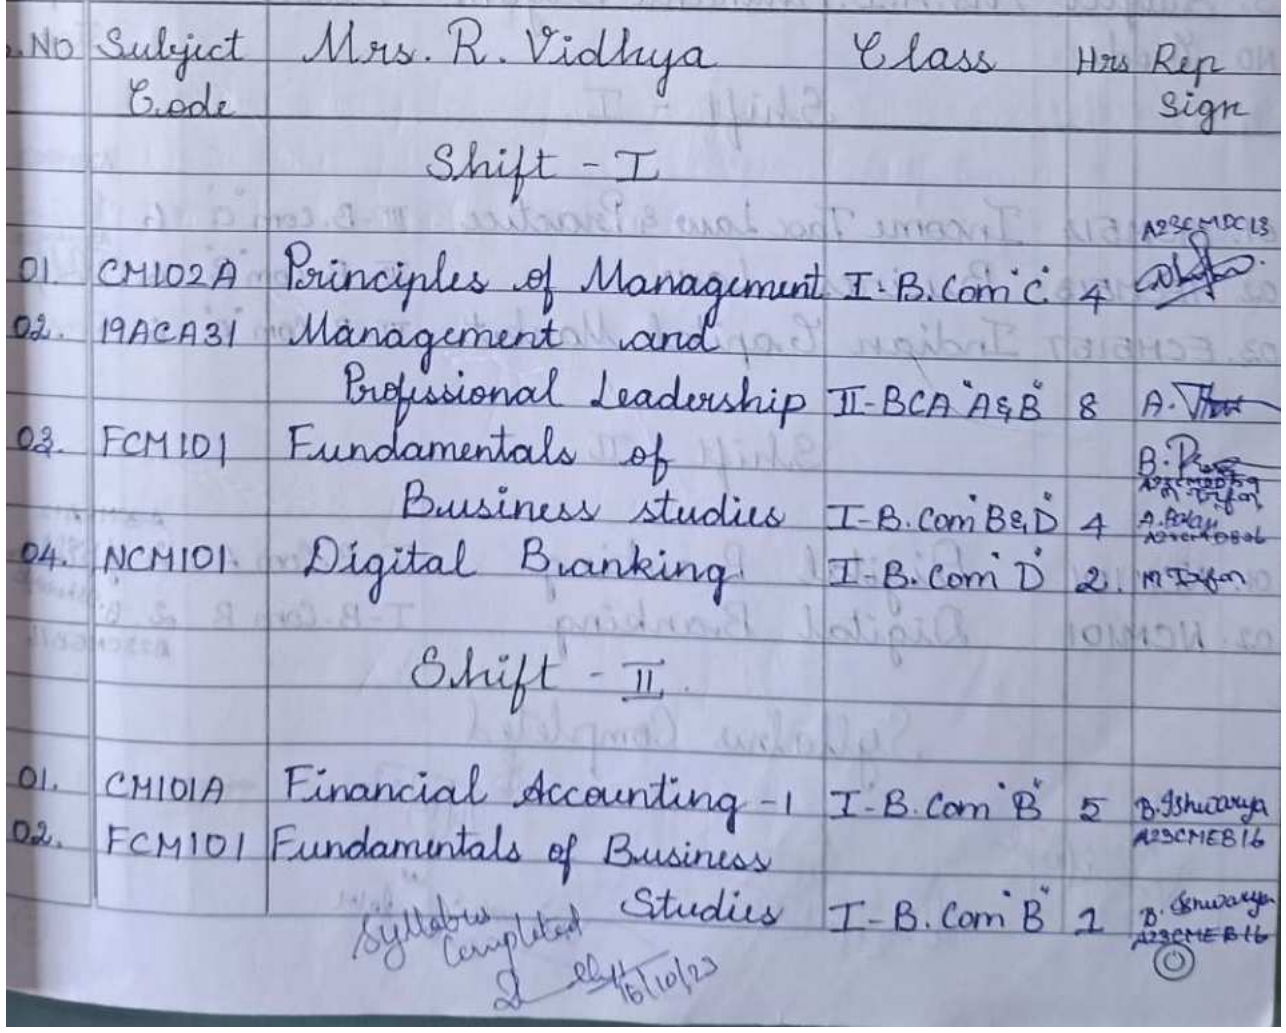 S.No Subject Mrs. R. Vidhya Class Hrs Rep
Code Sign
Shift - I
A23CMDC13
01. CM102A Principles of Management I-B.Com "C" 4
02. 19ACA31 Management and
Professional Leadership II-BCA "A&B" 8 A.
03. FCM101 Fundamentals of B.
Business studies I-B.Com "B&D" 4
04. NCM101 Digital Banking I-B.Com "D" 2.
Shift - II
01. CM101A Financial Accounting -1 I-B.Com "B" 5 B.Ishwarya
02. FCM101 Fundamentals of Business A23CMEB16
Studies I-B.Com "B" 1 B. Ishwarya
A23CMEB16
Syllabus
Completed
16/10/23